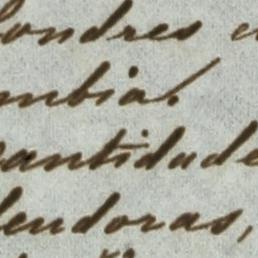 ondres
mbia!
cantidade
dendoras,